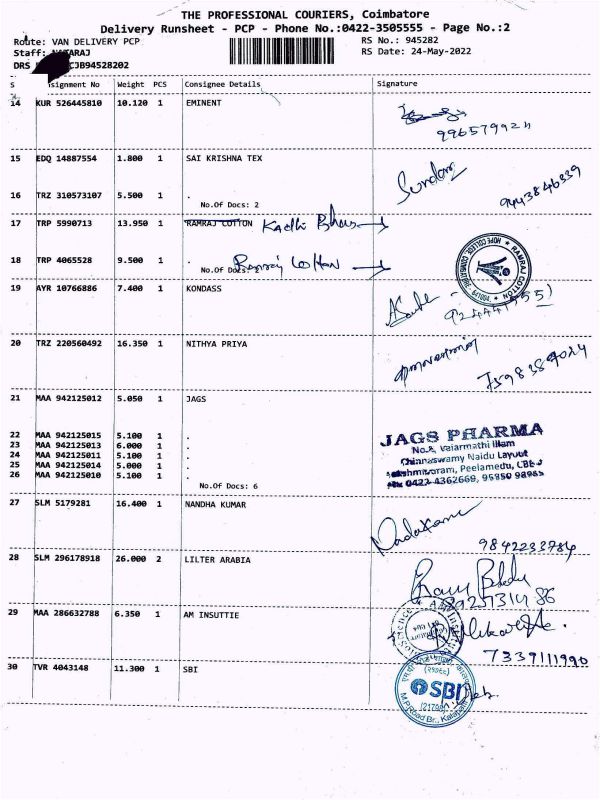 THE PROFESSIONAL COURIERS, Coimbatore
Delivery Runsheet - PCP - Phone No.:0422-3505555 - Page No.:2
Route: VAN DELIVERY PCP
RS No.: 945282
Staff: NATARAJ
RS Date: 24-May-2022
DRS CJB94528202
S signment No Weight PCS Consignee Details Signature
14 KUR 526445810 10.120 1 EMINENT
15 EDQ 14887554 1.800 1 SAI KRISHNA TEX
Sundar
16 TRZ 310573107 5.500 1 .
No.Of Docs: 2
9443846339
17 TRP 5990713 13.950 1 RAMRAJ COTTON
18 TRP 4065528 9.500 1 .
No.Of Docs: 2 Ramraj Cotton
RAMRAJ COTTON
HOPE COLLEGE, COIMBATORE - 641004.
19 AYR 10766886 7.400 1 KONDASS
20 TRZ 220560492 16.350 1 NITHYA PRIYA
21 MAA 942125012 5.050 1 JAGS
22 MAA 942125015 5.100 1 .
23 MAA 942125013 6.000 1 .
24 MAA 942125011 5.100 1 .
25 MAA 942125014 5.000 1 .
26 MAA 942125010 5.100 1 .
No.Of Docs: 6
JAGS PHARMA
Valarmathi Illam
Chinnaswamy Naidu Layout
Peelamedu, CBE-4
0422 4362669,
27 SLM 5179281 16.400 1 NANDHA KUMAR
9842233784
28 SLM 296178918 26.000 2 LILTER ARABIA
29 MAA 286632788 6.350 1 AM INSUTTIE
7339111990
30 TVR 4043148 11.300 1 SBI
SBI
(21798)